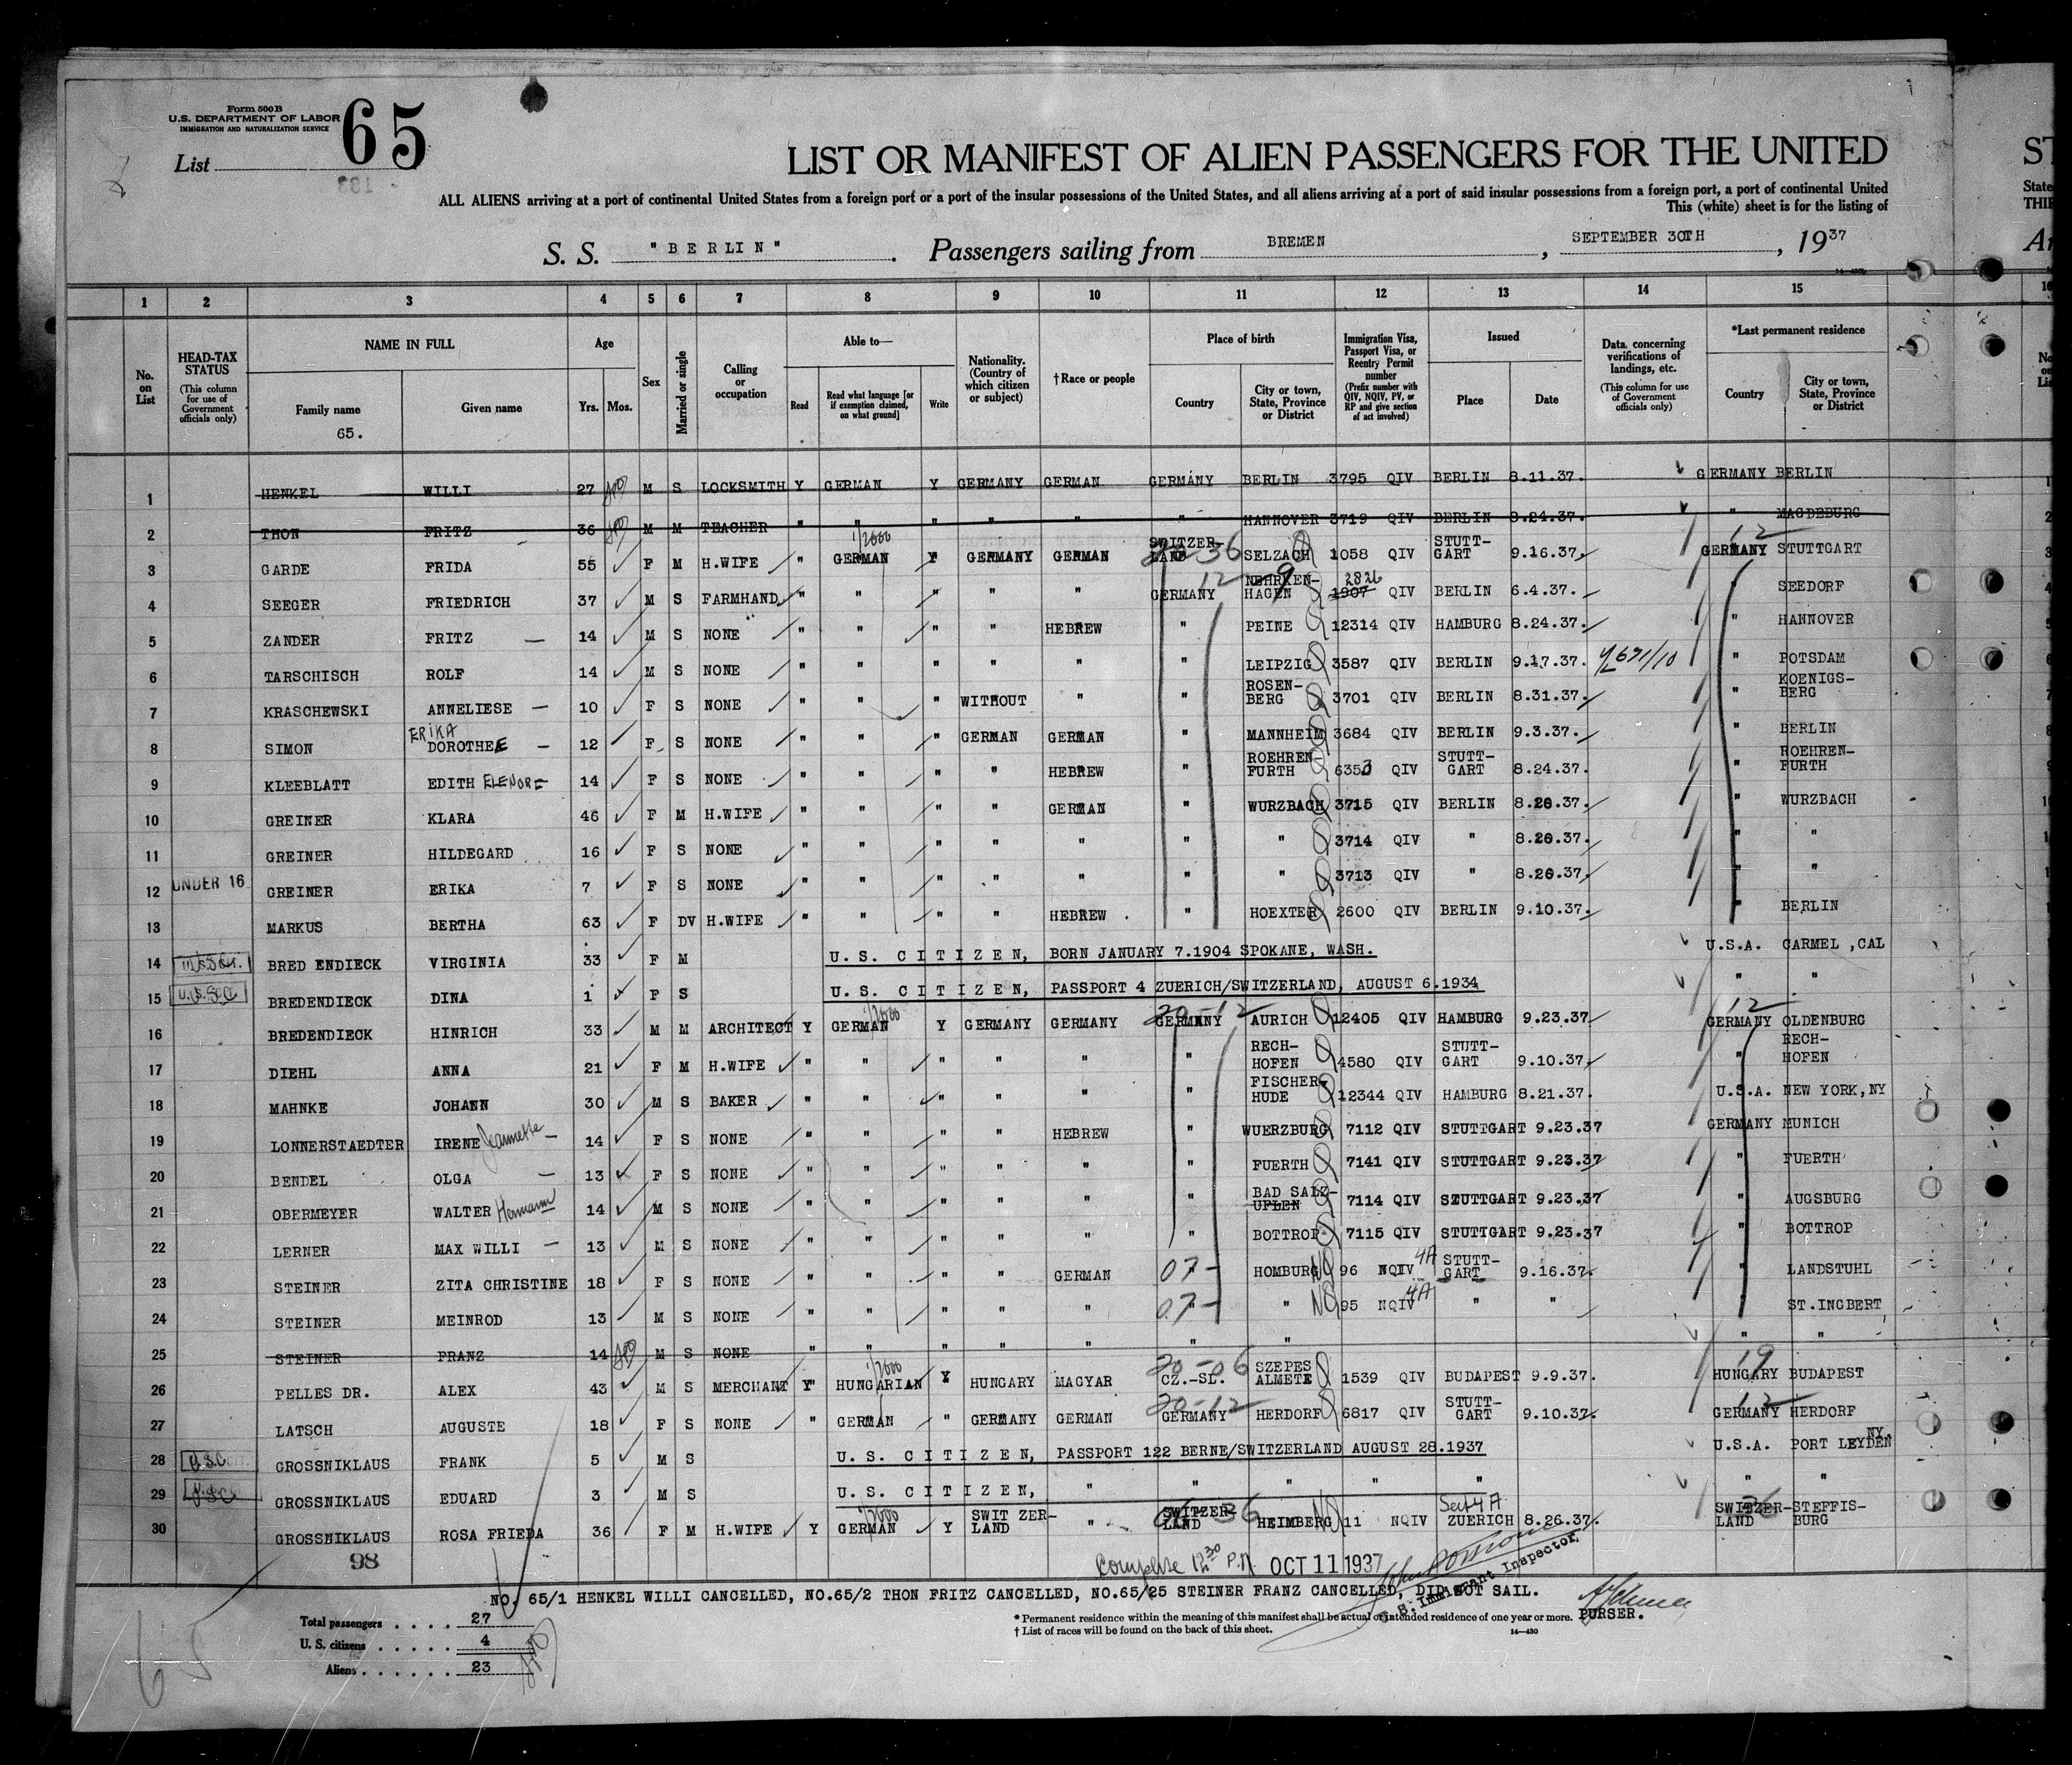 Form 500B
U.S. DEPARTMENT OF LABOR
IMMIGRATION AND NATURALIZATION SERVICE
List 65
LIST OR MANIFEST OF ALIEN PASSENGERS FOR THE UNITED
ST
ALL ALIENS arriving at a port of continental United States from a foreign port or a port of the insular possessions of the United States, and all aliens arriving at a port of said insular possessions from a foreign port, a port of continental United
State
This (white) sheet is for the listing of
THI
S. S. "BERLIN". Passengers sailing from BREMEN, SEPTEMBER 30TH, 1937
1 2 3 4 5 6 7 8 9 10 11 12 13 14 15
No. on List
HEAD-TAX STATUS (This column for use of Government officials only)
NAME IN FULL
Family name
65.
Given name
Age
Yrs. Mos.
Sex
Married or single
Calling or occupation
Able to—
Read
Read what language [or if exemption claimed, on what ground]
Write
Nationality. (Country of which citizen or subject)
†Race or people
Place of birth
Country
City or town, State, Province or District
Immigration Visa, Passport Visa, or Reentry Permit number (Prefix number with QIV, NQIV, PV, or RP and give section of act involved)
Issued
Place
Date
Data concerning verifications of landings, etc. (This column for use of Government officials only)
*Last permanent residence
Country
City or town, State, Province or District
1 HENKEL WILLI 27 M S LOCKSMITH Y GERMAN Y GERMANY GERMAN GERMANY BERLIN 3795 QIV BERLIN 8.11.37. GERMANY BERLIN
2 THON FRITZ 36 M M TEACHER " " " " " " HANNOVER 3719 QIV BERLIN 8.24.37. " MAGDEBURG
3 GARDE FRIDA 55 F M H.WIFE " GERMAN Y GERMANY GERMAN SWITZER-LAND SELZACH 1058 QIV STUTT-GART 9.16.37. GERMANY STUTTGART
4 SEEGER FRIEDRICH 37 M S FARMHAND " " " " " GERMANY NEHRKEN-HAGEN 1907 2826 QIV BERLIN 6.4.37. " SEEDORF
5 ZANDER FRITZ — 14 M S NONE " " " " HEBREW " PEINE 12314 QIV HAMBURG 8.24.37. " HANNOVER
6 TARSCHISCH ROLF 14 M S NONE " " " " " " LEIPZIG 3587 QIV BERLIN 9.17.37. " POTSDAM
7 KRASCHEWSKI ANNELIESE — 10 F S NONE " " " WITHOUT " " ROSEN-BERG 3701 QIV BERLIN 8.31.37. " KOENIGS-BERG
8 SIMON ERIKA DOROTHEE — 12 F S NONE " " " GERMAN GERMAN " MANNHEIM 3684 QIV BERLIN 9.3.37. " BERLIN
9 KLEEBLATT EDITH ELENOR 14 F S NONE " " " " HEBREW " ROEHREN-FURTH 6353 QIV STUTT-GART 8.24.37. " ROEHREN-FURTH
10 GREINER KLARA 46 F M H.WIFE " " " " GERMAN " WURZBACH 3715 QIV BERLIN 8.26.37. " WURZBACH
11 GREINER HILDEGARD 16 F S NONE " " " " " " " 3714 QIV " 8.26.37. " "
12 UNDER 16 GREINER ERIKA 7 F S NONE " " " " " " " 3713 QIV " 8.26.37. " "
13 MARKUS BERTHA 63 F DV H.WIFE " " " " HEBREW " HOEXTER 2600 QIV BERLIN 9.10.37. " BERLIN
14 BRED ENDIECK VIRGINIA 33 F M U.S. CITIZEN, BORN JANUARY 7.1904 SPOKANE, WASH. U.S.A. CARMEL ,CAL
15 BREDENDIECK DINA 1 F S U.S. CITIZEN, PASSPORT 4 ZUERICH/SWITZERLAND, AUGUST 6.1934 " "
16 BREDENDIECK HINRICH 33 M M ARCHITECT Y GERMAN Y GERMANY GERMANY GERMANY AURICH 12405 QIV HAMBURG 9.23.37 GERMANY OLDENBURG
17 DIEHL ANNA 21 F M H.WIFE " " " " " " RECH-HOFEN 4580 QIV STUTT-GART 9.10.37. " RECH-HOFEN
18 MAHNKE JOHANN 30 M S BAKER " " " " " " FISCHER-HUDE 12344 QIV HAMBURG 8.21.37. U.S.A. NEW YORK,NY
19 LONNERSTAEDTER IRENE Jeannette — 14 F S NONE " " " " HEBREW " WUERZBURG 7112 QIV STUTTGART 9.23.37 GERMANY MUNICH
20 BENDEL OLGA — 13 F S NONE " " " " " " FUERTH 7141 QIV STUTTGART 9.23.37 " FUERTH
21 OBERMEYER WALTER Hermann 14 M S NONE " " " " " " BAD SALZ-UFLEN 7114 QIV STUTTGART 9.23.37 " AUGSBURG
22 LERNER MAX WILLI — 13 M S NONE " " " " " " BOTTROP 7115 QIV STUTTGART 9.23.37 " BOTTROP
23 STEINER ZITA CHRISTINE 18 F S NONE " " " " GERMAN 07- HOMBURG 96 NQIV 4A STUTT-GART 9.16.37. " LANDSTUHL
24 STEINER MEINROD 13 M S NONE " " " " " 07- " 95 NQIV 4A " " ST.INGBERT
25 STEINER FRANZ 14 M S NONE " " " " " " " " "
26 PELLES DR. ALEX 43 M S MERCHANT Y HUNGARIAN Y HUNGARY MAGYAR CZ.-SL. SZEPES ALMETE 1539 QIV BUDAPEST 9.9.37. HUNGARY BUDAPEST
27 LATSCH AUGUSTE 18 F S NONE " GERMAN " GERMANY GERMAN GERMANY HERDORF 6817 QIV STUTT-GART 9.10.37. GERMANY HERDORF
28 GROSSNIKLAUS FRANK 5 M S U.S. CITIZEN, PASSPORT 122 BERNE/SWITZERLAND AUGUST 28.1937 U.S.A. PORT LEYDEN NY.
29 GROSSNIKLAUS EDUARD 3 M S U.S. CITIZEN, " " " " " " "
30 GROSSNIKLAUS ROSA FRIEDA 36 F M H.WIFE Y GERMAN Y SWIT ZER-LAND " SWITZER-LAND HEIMBERG 11 NQIV Sect 4 A ZUERICH 8.26.37. SWITZER-LAND STEFFIS-BURG
98
Complete 12 30 P.M. OCT 11 1937
U.S. Immigrant Inspector
NO. 65/1 HENKEL WILLI CANCELLED, NO.65/2 THON FRITZ CANCELLED, NO.65/25 STEINER FRANZ CANCELLED, DID NOT SAIL.
PURSER.
Total passengers . . . . 27
U. S. citizens . . . . . 4
Aliens . . . . . . 23
* Permanent residence within the meaning of this manifest shall be actual or intended residence of one year or more.
† List of races will be found on the back of this sheet.
14—430
65